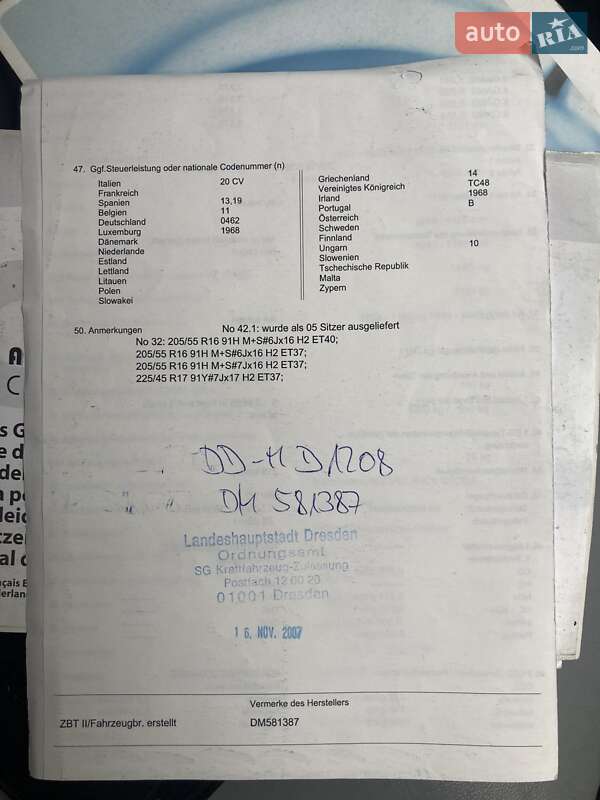 auto RIA .com
47. Ggf.Steuerleistung oder nationale Codenummer (n)
Italien 20 CV
Frankreich
Spanien 13,19
Belgien 11
Deutschland 0462
Luxemburg 1968
Dänemark
Niederlande
Estland
Lettland
Litauen
Polen
Slowakei
Griechenland 14
Vereinigtes Königreich TC48
Irland 1968
Portugal B
Österreich
Schweden
Finnland
Ungarn 10
Slowenien
Tschechische Republik
Malta
Zypern
50. Anmerkungen No 42.1: wurde als 05 Sitzer ausgeliefert
No 32: 205/55 R16 91H M+S#6Jx16 H2 ET40;
205/55 R16 91H M+S#6Jx16 H2 ET37;
205/55 R16 91H M+S#7Jx16 H2 ET37;
225/45 R17 91Y#7Jx17 H2 ET37;
DD-MD1208
DM 581387
Landeshauptstadt Dresden
Ordnungsamt
SG Kraftfahrzeug-Zulassung
Postfach 12 00 20
01001 Dresden
16. NOV. 2007
Vermerke des Herstellers
ZBT II/Fahrzeugbr. erstellt DM581387